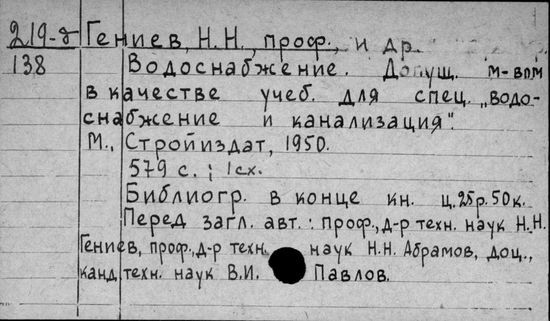 219-д Гениев, Н.Н., проф., и др.
138 Водоснабжение. Допущ. м-вом
в качестве учеб. для спец. „водо-
снабжение и канализация".
М., Стройиздат, 1950.
579 с.; 1 сх.
Библиогр. в конце кн. ц. 25 р. 50 к.
Перед загл. авт.: проф., д-р техн. наук Н.Н.
Гениев, проф., д-р техн. наук Н.Н. Абрамов, доц.,
канд. техн. наук В.И. Павлов.